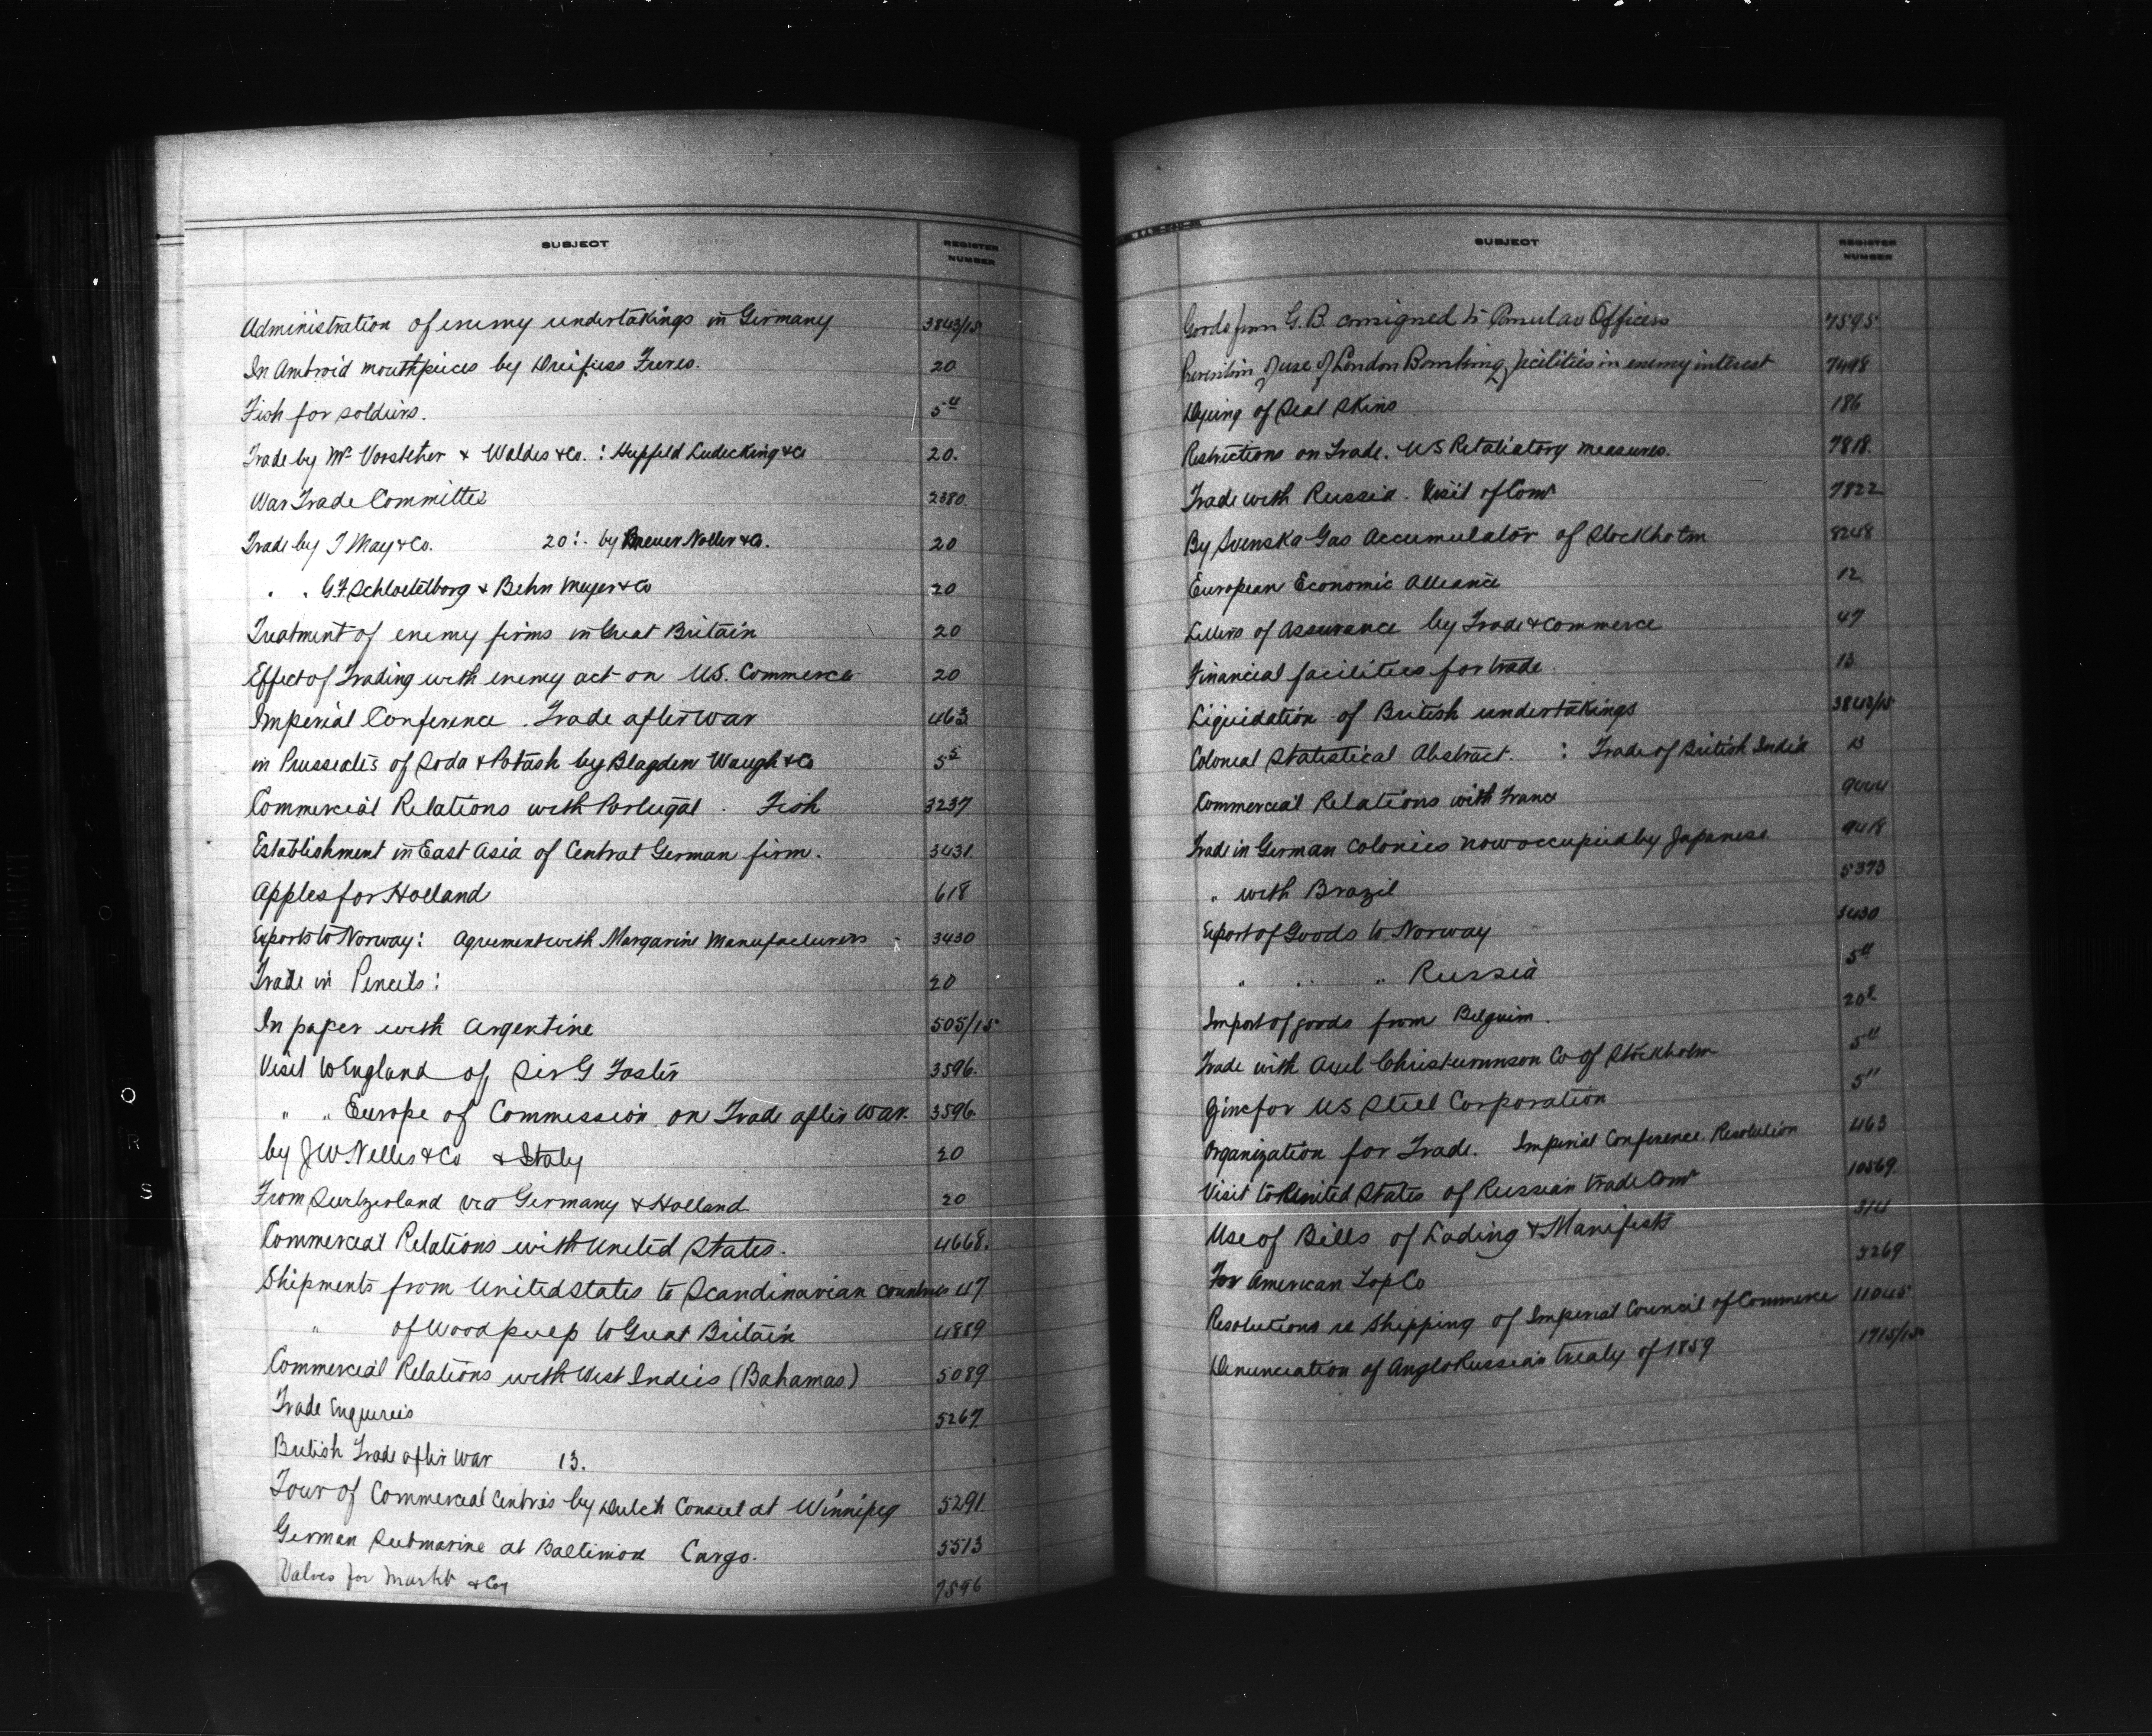 SUBJECT REGISTER NUMBER
Administration of enemy undertakings in Germany 3843/15
In Ambroid mouthpieces by Dreifuss Freres. 20
Fish for soldiers. 5
Trade by Mr Vorsteher & Waldes & Co. : Hupfeld Ludecking & Co 20.
War Trade Committee 2380
Trade by J May & Co. 20 : by Breuer Noller & Co. 20
" " G.F. Schloetelborg & Behn Meyer & Co 20
Treatment of enemy firms in Great Britain 20
Effect of Trading with enemy act on U.S. Commerce 20
Imperial Conference. Trade after war 463
in Prussiates of Soda & Potash by Blagden Waugh & Co 5
Commercial Relations with Portugal. Fish 3237
Establishment in East Asia of Central German firm. 3431
Apples for Holland 618
Exports to Norway: Agreement with Margarine Manufacturers 3430
Trade in Pencils: 20
In paper with Argentine 505/15
Visit to England of Sir G Foster 3596.
" " Europe of Commission on Trade after War. 3596.
by J W Nelles & Co & Italy 20
From Switzerland via Germany & Holland 20
Commercial Relations with United States. 4668.
Shipments from United States to Scandinavian countries 47
" of Wood pulp to Great Britain 4889
Commercial Relations with West Indies (Bahamas) 5089
Trade Enquiries 5267
British Trade after War 13.
Tour of Commercial Centres by Dutch Consul at Winnipeg 5291
German Submarine at Baltimore Cargo. 5513
Valves for Markt & Coy 7596
SUBJECT REGISTER NUMBER
Goods from G.B. consigned to Consular Officers 7595
Prevention of use of London Banking facilities in enemy interest 7498
Dyeing of Seal Skins 186
Restrictions on Trade. US Retaliatory measures. 7818.
Trade with Russia. Visit of Comr 7822
By Svenska Gas Accumulator of Stockholm 8248
European Economic Alliance 12
Letters of Assurance by Trade & Commerce 47
Financial facilities for trade 13
Liquidation of British undertakings 3843/15
Colonial Statistical Abstract. : Trade of British India 13
Commercial Relations with France 9444
Trade in German Colonies now occupied by Japanese 9418
" with Brazil 5373
Export of Goods to Norway 3430
" " " Russia 5
Import of goods from Belguim. 20
Trade with Axel Christiernsson Co of Stockholm 5
Zinc for US Steel Corporation 5
Organization for Trade. Imperial Conference. Resolution 463
Visit to United States of Russian trade Comr 10569
Use of Bills of Lading & Manifests 314
For American Lop Co 5269
Resolutions re Shipping of Imperial Council of Commerce 11045
Denunciation of Anglo Russian treaty of 1859 1715/15